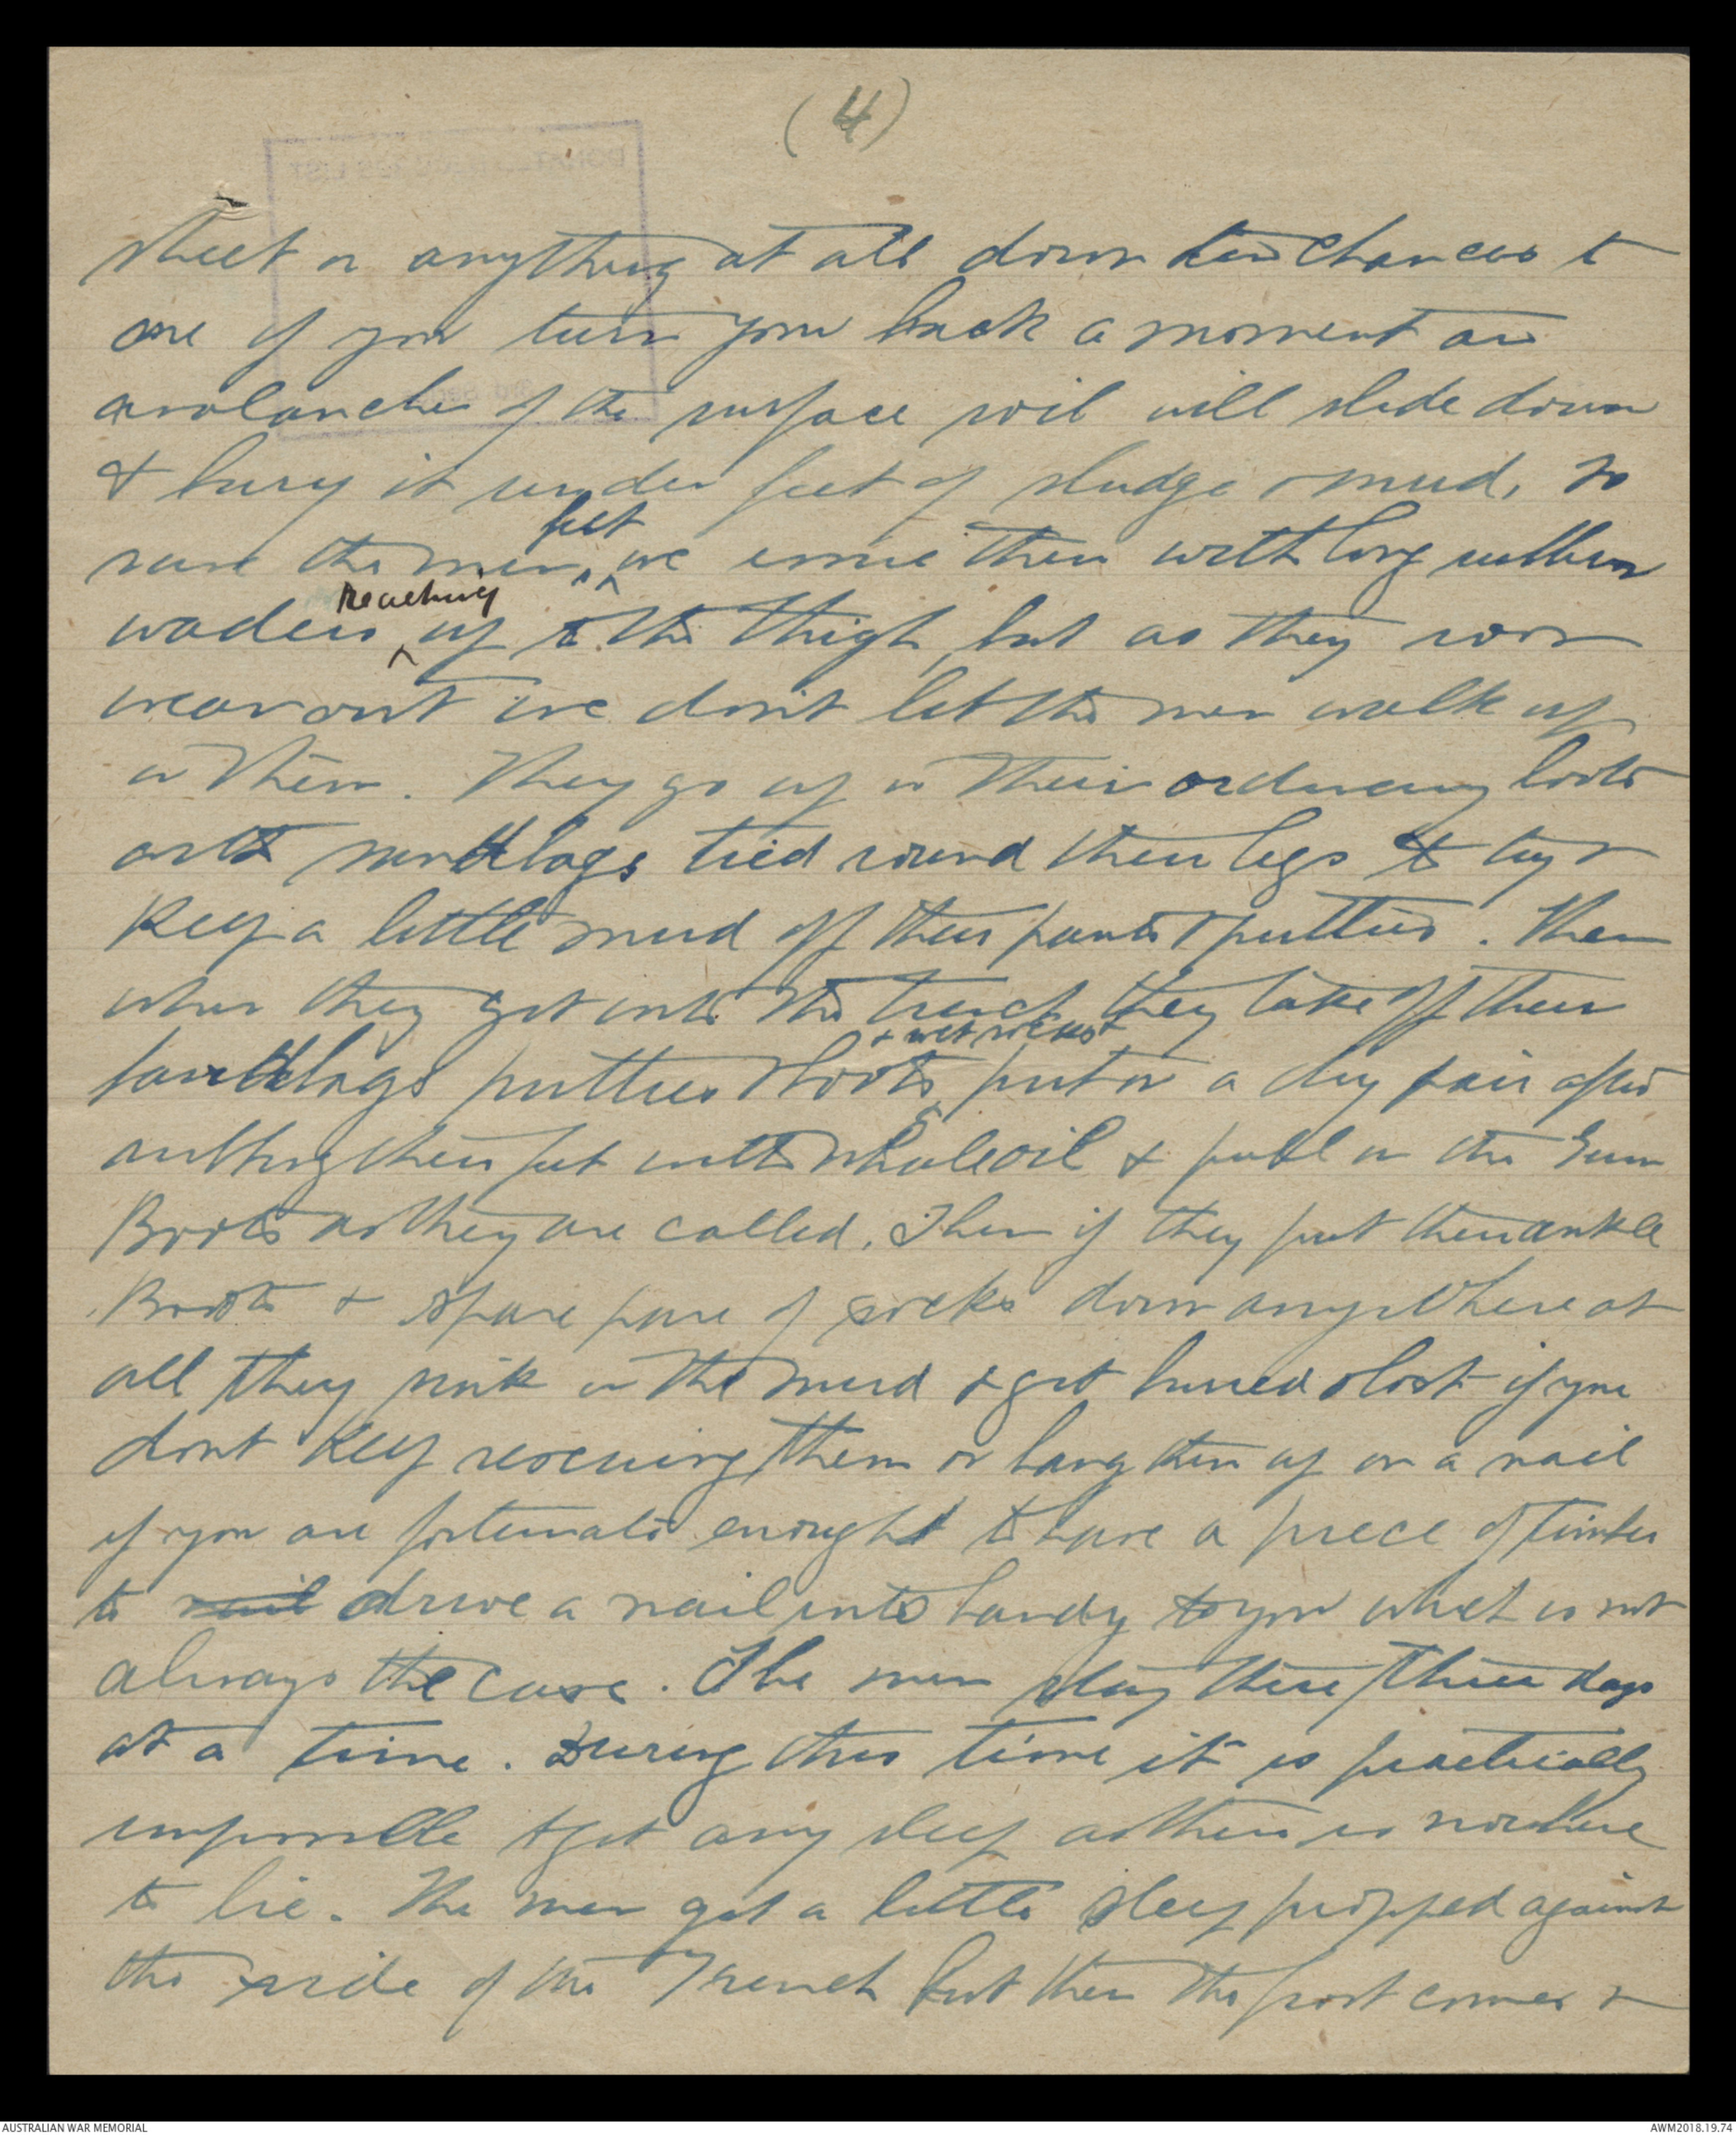 (4)
sheet or anything at all down ten chances to
one if you turn your back a moment an
avalanche of the surface soil will slide down
& bury it under feet of sludge & mud, To
save the men, feet we issue them with long rubber
waders reaching up to the thigh, but as they soon
wear out we don't let the men walk up
in them. They go up in their ordinary boots
with sandbags tied round their legs to try &
keep a little mud off their pants & putties. Then
when they get into the trench they take off their
sandbags putties & boots & wet socks & put on a dry pair after
rubbing their feet with whale oil & pull on the Gum
Boots as they are called. Then if they put their ankle
Boots & spare pare of socks down anywhere at
all they sink in the mud & get buried & lost if you
dont keep rescuing them or hang them up on a nail
if you are fortunate enough to have a piece of timber
to nail drive a nail into handy to you which is not
always the case. The men stay there three days
at a time. During this time it is practically
impossible to get any sleep as there is nowhere
to lie. The men get a little sleep propped against
the side of the Trench but then the frost comes &
AUSTRALIAN WAR MEMORIAL
AWM2018.19.74